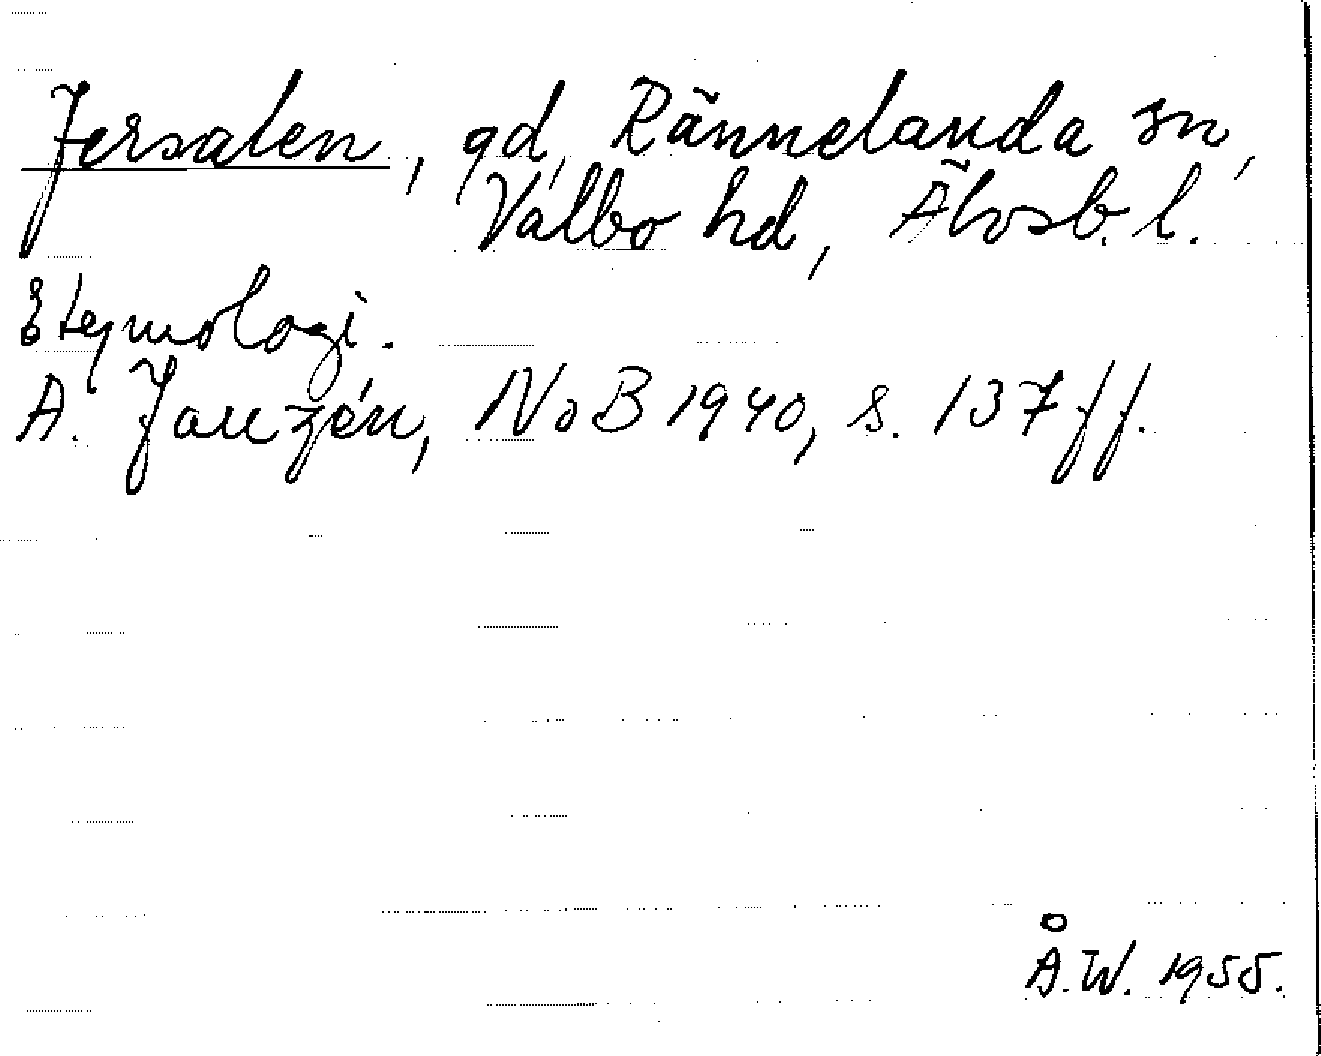 Jersalen, gd, Rännelanda sn,
Valbo hd, Älvsb. l.
Etymologi.
A. Janzén, NoB 1940, s. 137 ff.
Å.W. 1955.